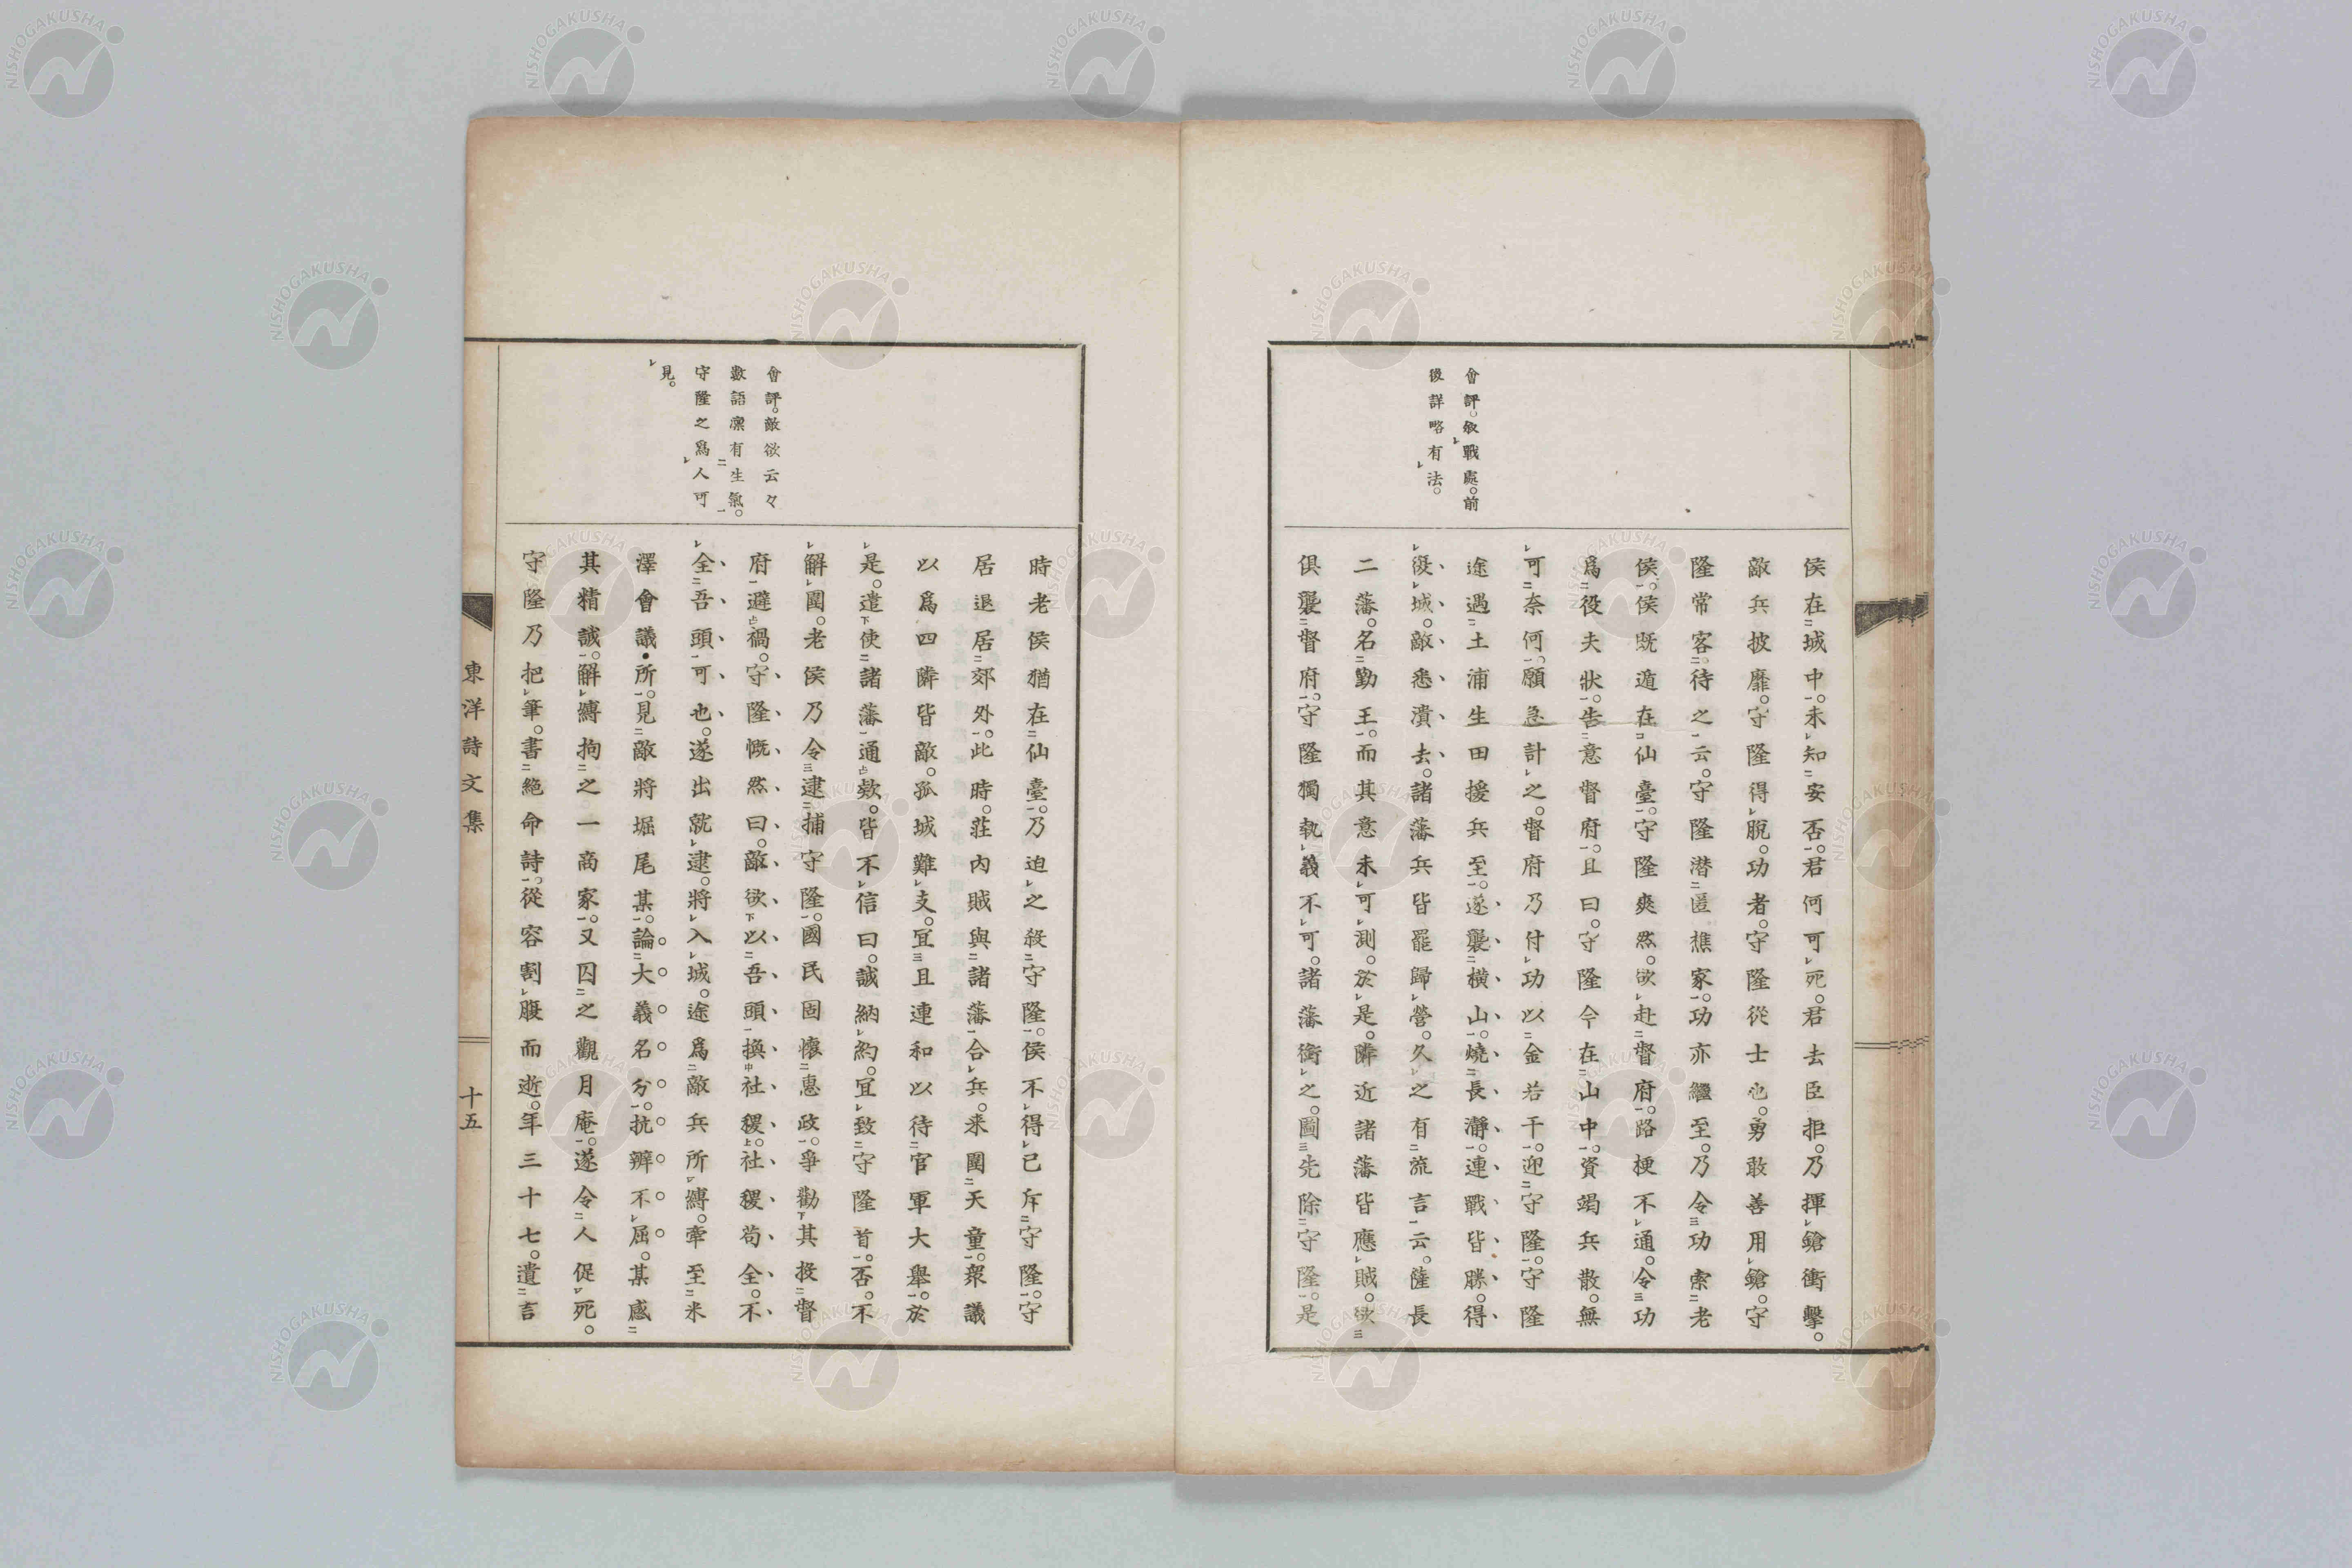 會評。敘戰處。前
後詳略有法。
侯在城中。未知安否。君何可死。君去臣拒。乃揮鎗衝擊。
敵兵披靡。守隆得脫。功者。守隆從士也。勇敢善用鎗。守
隆常客待之云。守隆潛匿樵家。功亦繼至。乃令功索老
侯。侯既遁在仙臺。守隆爽然。欲赴督府。路梗不通。令功
爲役夫狀。告意督府。且曰。守隆今在山中。資竭兵散。無
可奈何。願急計之。督府乃付功以金若干。迎守隆。守隆
途遇土浦生田援兵至。遂襲橫山。燒長瀞。連戰皆勝。得
復城。敵悉潰去。諸藩兵皆罷歸營。久之有流言云。薩長
二藩。名勤王。而其意未可測。於是。隣近諸藩皆應賊。欲
俱襲督府。守隆獨執義不可。諸藩銜之。圖先除守隆。是
會評。敵欲云々
數語凛有生氣。
守隆之爲人可
見。
時老侯猶在仙臺。乃迫之殺守隆。侯不得已斥守隆。守
居退居郊外。此時。莊內賊與諸藩合兵。來圍天童。衆議
以爲四隣皆敵。孤城難支。宜且連和以待官軍大舉。於
是。遣使諸藩通欵。皆不信曰。誠納約。宜致守隆首。否。不
解圍。老侯乃令逮捕守隆。國民固懷惠政。爭勸其投督
府避禍。守隆慨然曰。敵欲以吾頭換社稷。社稷苟全。不
全吾頭可也。遂出就逮。將入城。途爲敵兵所縛。牽至米
澤會議所。見敵將堀尾某。論大義名分。抗辨不屈。某感
其精誠。解縛拘之一商家。又囚之觀月庵。遂令人促死。
守隆乃把筆。書絕命詩。從容割腹而逝。年三十七。遺言
東洋詩文集
十五
NISHOGAKUSHA